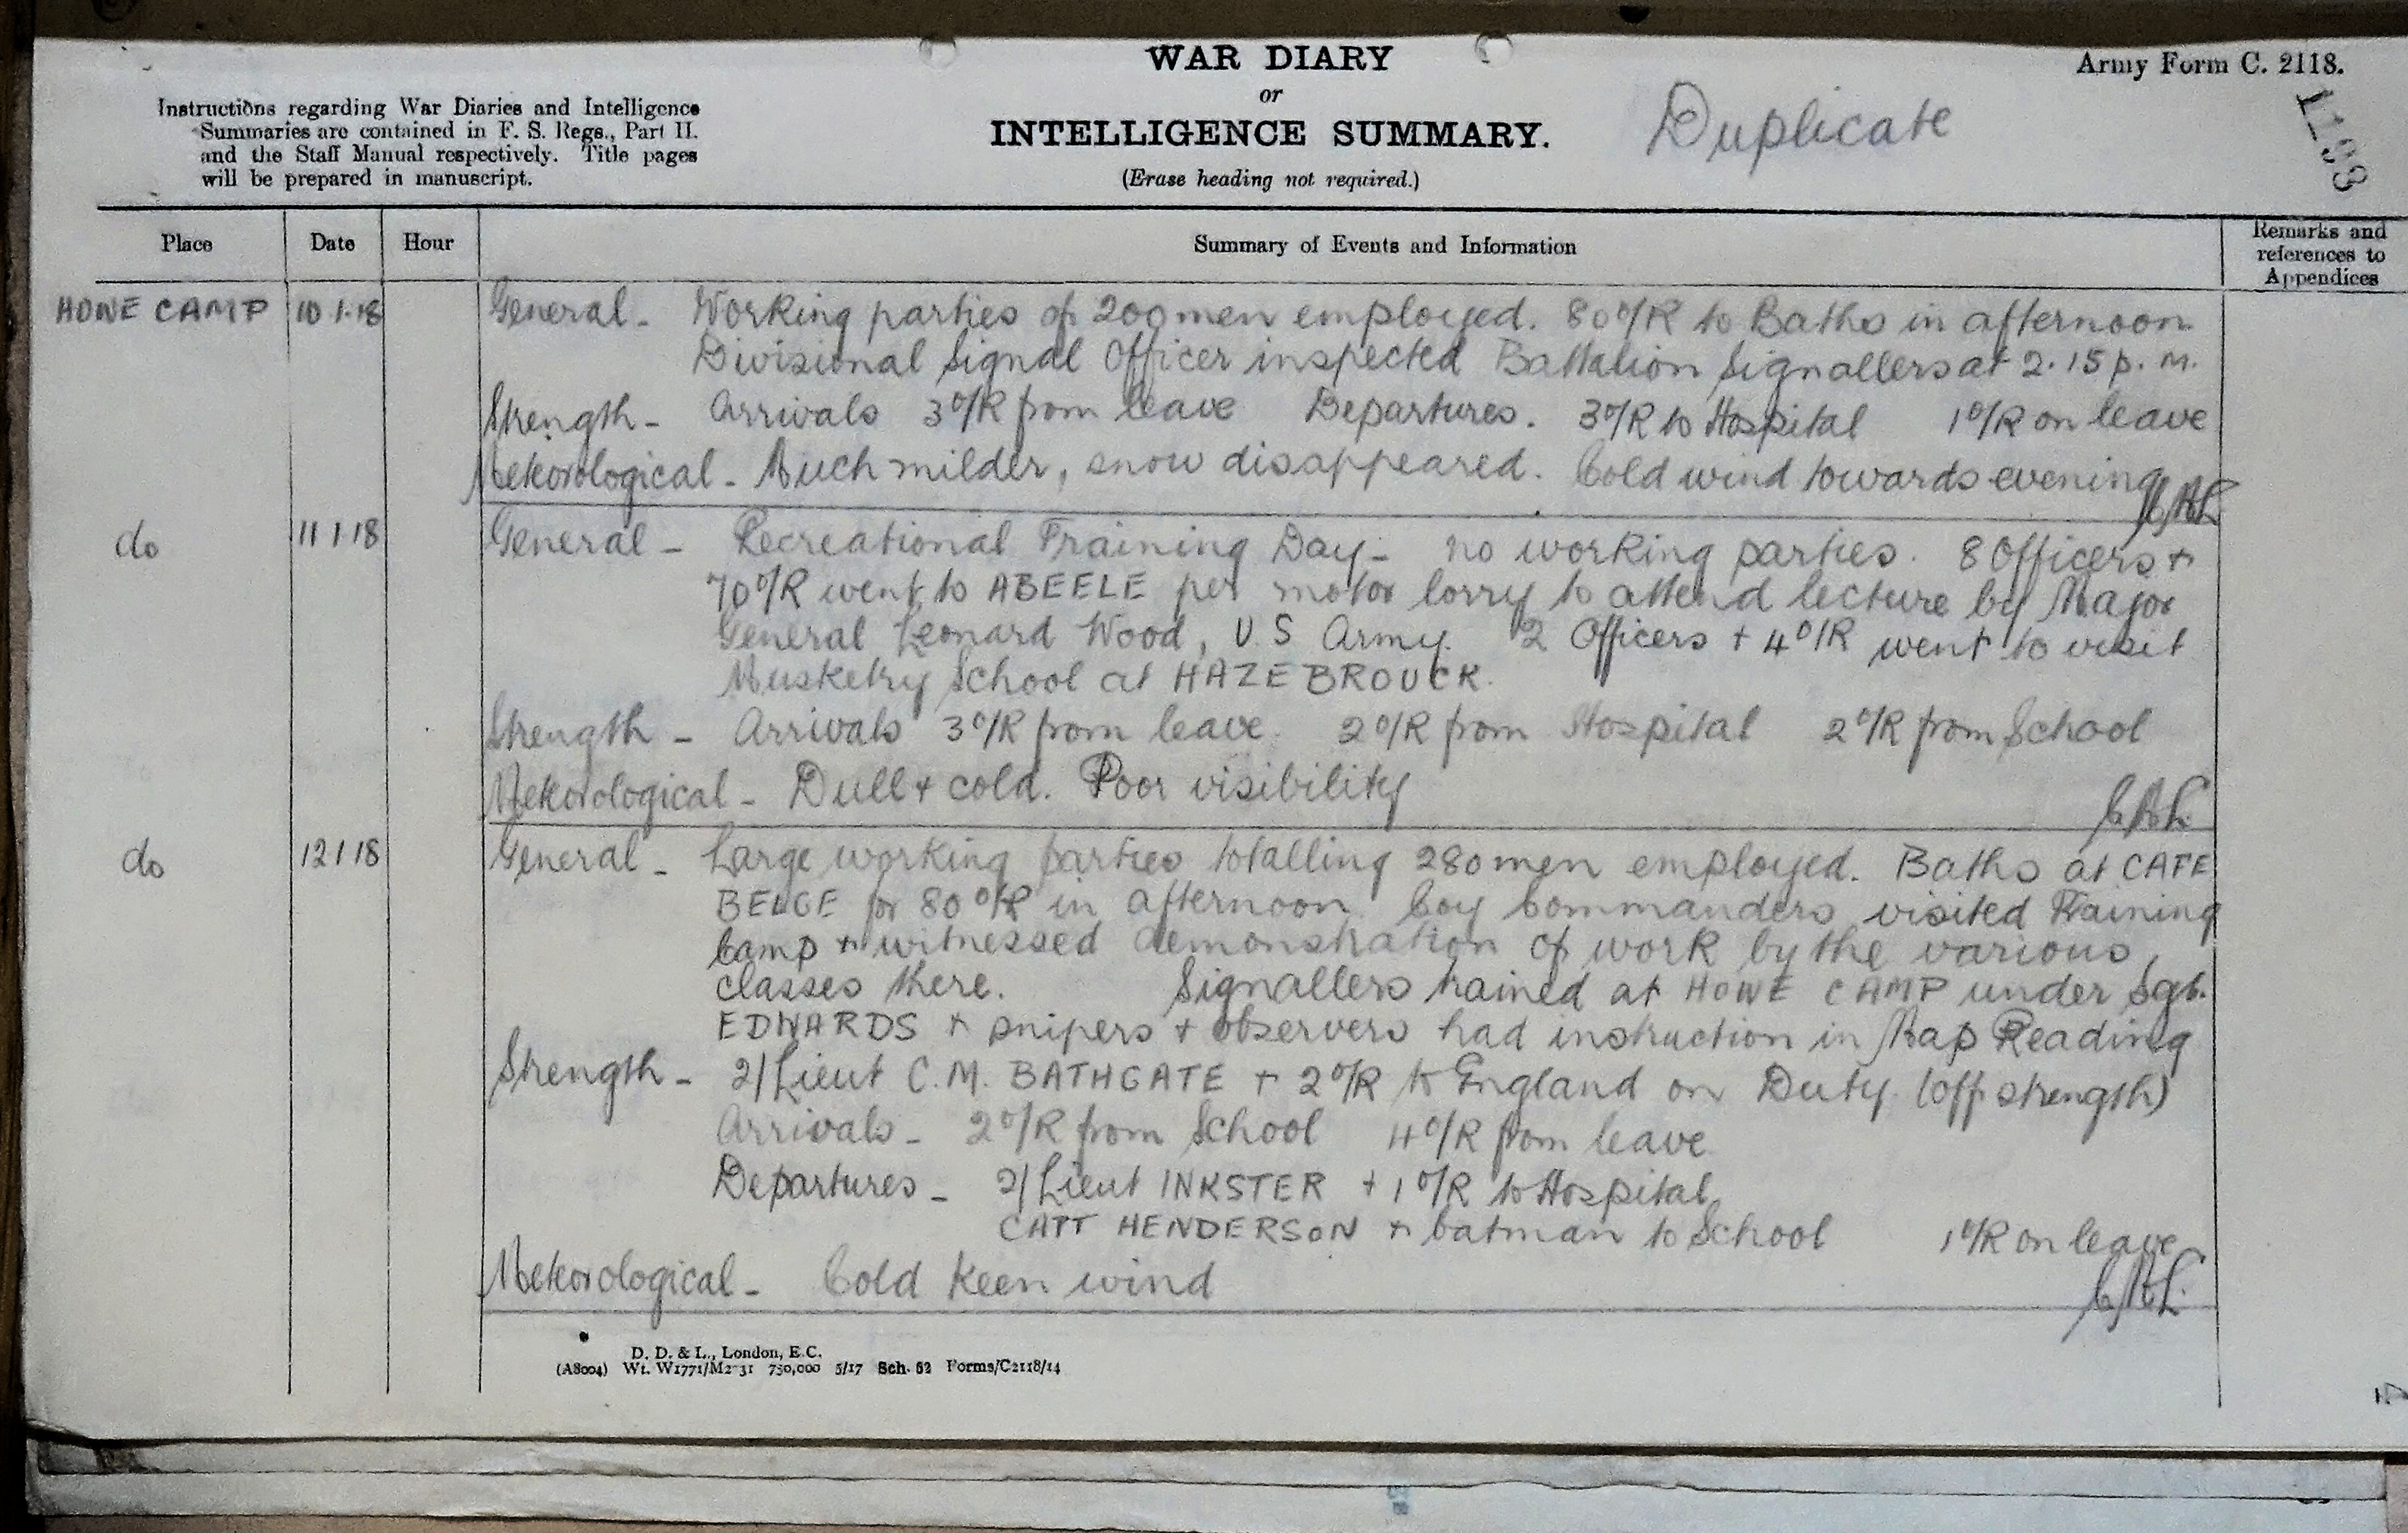 WAR DIARY
or
INTELLIGENCE SUMMARY.
(Erase heading not required.)
Duplicate
Army Form C. 2118.
1199
Instructions regarding War Diaries and Intelligence
Summaries are contained in F. S. Regs., Part II.
and the Staff Manual respectively. Title pages
will be prepared in manuscript.
Place Date Hour Summary of Events and Information Remarks and
references to
Appendices
HOWE CAMP 10.1.18 General - Working parties of 200 men employed. 80 O/R to Baths in afternoon
Divisional Signal Officer inspected Battalion Signallers at 2.15 p.m.
Strength - Arrivals 3 O/R from leave Departures. 3 O/R to Hospital 1 O/R on leave
Meteorological - Much milder, snow disappeared. Cold wind towards evening
do 11 1 18 General - Recreational Training Day - no working parties. 8 Officers +
70 O/R went to ABEELE per motor lorry to attend lecture by Major
General Leonard Wood, U.S Army. 2 Officers + 4 O/R went to visit
Musketry School at HAZEBROUCK.
Strength - Arrivals 3 O/R from leave. 2 O/R from Hospital 2 O/R from School
Meteorological - Dull + cold. Poor visibility
do 12 1 18 General - Large working parties totalling 280 men employed. Baths at CAFE
BELGE for 80 O/R in afternoon. Coy Commanders visited Training
Camp + witnessed demonstration of work by the various
classes there. Signallers trained at HOWE CAMP under Sgt.
EDWARDS + snipers + observers had instruction in Map Reading
Strength - 2/Lieut C.M. BATHGATE + 2 O/R to England on Duty. (off strength)
Arrivals - 2 O/R from School 4 O/R from leave
Departures - 2/Lieut INKSTER + 1 O/R to Hospital
CAPT HENDERSON + batman to School 1 O/R on leave
Meteorological - Cold Keen wind
D. D. & L., London, E.C.
(A8004) Wt. W1771/M2 31 750,000 5/17 Sch. 52 Forms/C2118/14